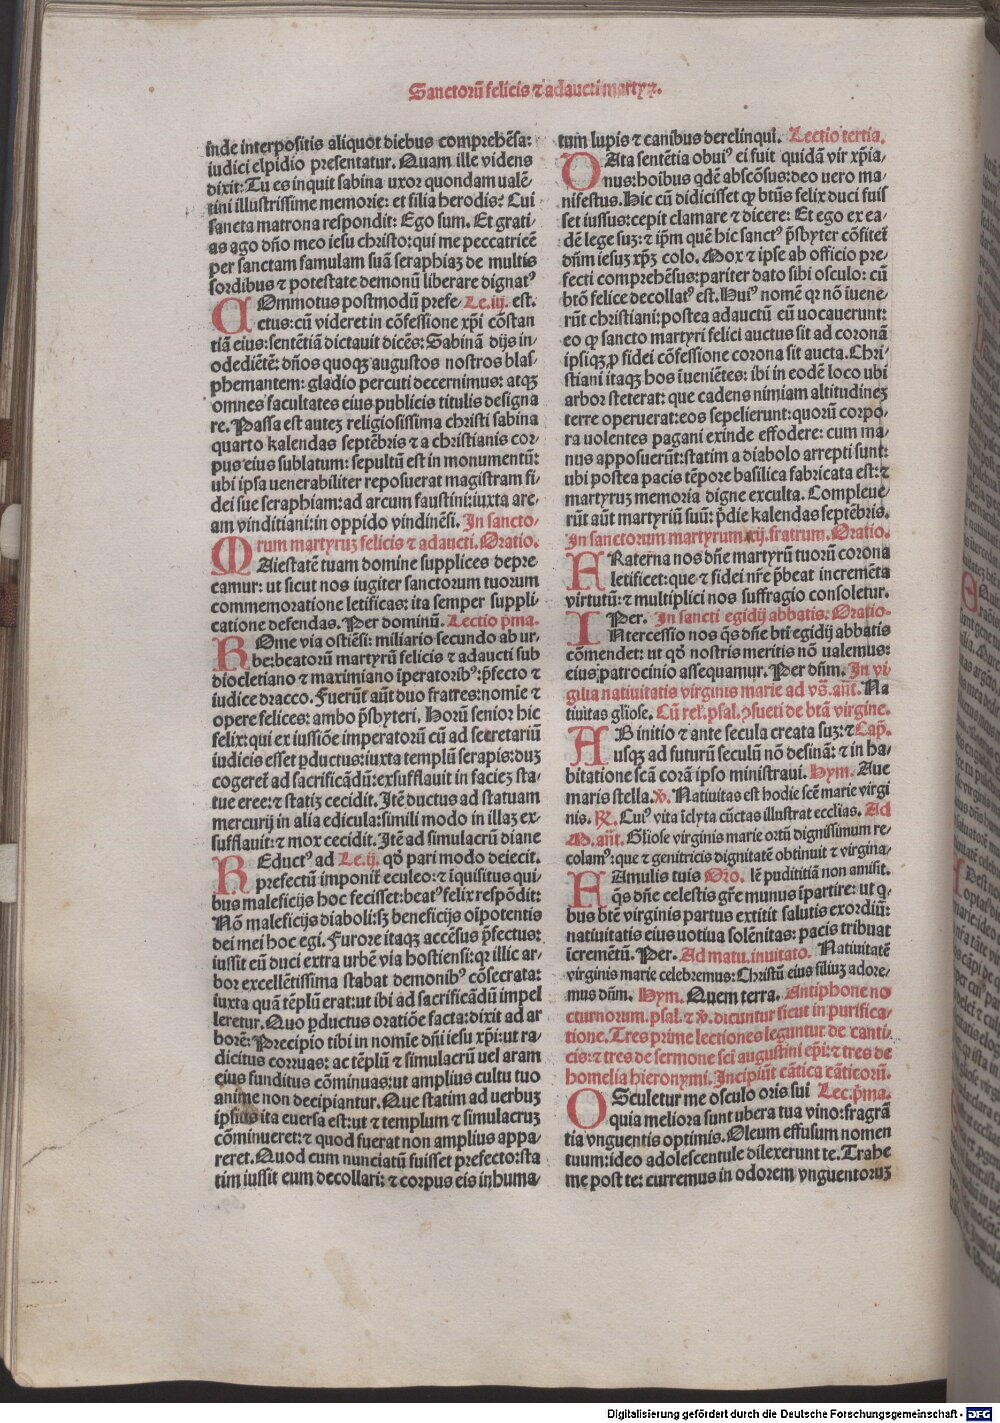 Sanctorū felicis ⁊ adaucti martyꝝ.
inde interpositis aliquot diebus comprehēsa:
iudici elpidio presentatur. Quam ille videns
dixit: Tu es inquit sabina uxor quondam ualē-
tini illustrissime memorie: et filia herodis? Cui
sancta matrona respondit: Ego sum. Et grati-
as ago dño meo iesu christo: qui me peccatricē
per sanctam famulam suā seraphiaꝫ de multis
sordibus ⁊ potestate demonū liberare dignatꝰ
COmmotus postmodū prefe- Le.iij. est.
ctus: cū videret in cōfessione xp̄i cōstan
tiā eius: sentētiā dictauit dicēs: Sabinā dijs in-
odediētē: dños quoqꝫ augustos nostros blas-
phemantem: gladio percuti decernimus: atqꝫ
omnes facultates eius publicis titulis designa
re. Passa est auteꝫ religiosissima christi sabina
quarto kalendas septēbris ⁊ a christianis cor-
pus eius sublatum: sepultū est in monumentū:
ubi ipsa uenerabiliter reposuerat magistram fi-
dei sue seraphiam: ad arcum faustini: iuxta are-
am vinditiani: in oppido vindinēsi. In sancto-
rum martyruꝫ felicis ⁊ adaucti. Oratio.
MAiestatē tuam domine supplices depre
camur: ut sicut nos iugiter sanctorum tuorum
commemoratione letificas: ita semper suppli-
catione defendas. Per dominū. Lectio p̄ma.
ROme via ostiēsi: miliario secundo ab ur-
be: beatorū martyrū felicis ⁊ adaucti sub
diocletiano ⁊ maximiano īperatoribꝰ: p̄fecto ⁊
iudice dracco. Fuerūt aūt duo fratres: nomie ⁊
opere felices: ambo p̄sbyteri. Horū senior hic
felix: qui ex iussiōe imperatorū cū ad secretariū
iudicis esset ꝑductus: iuxta templū serapis: duꝫ
cogeret̄ ad sacrificādū: exsufflauit in facieꝫ sta-
tue eree: ⁊ statiꝫ cecidit. Itē ductus ad statuam
mercurij in alia edicula: simili modo in illaꝫ ex-
sufflauit: ⁊ mox cecidit. Itē ad simulacrū diane
REductꝰ ad Le.ij. qđ pari modo deiecit.
prefectū imponit̄ eculeo: ⁊ īquisitus qui-
bus maleficijs hoc fecisset: beatꝰ felix respōdit:
Nō maleficijs diaboli: sꝫ beneficijs oīpotentis
dei mei hoc egi. Furore itaqꝫ accēsus p̄fectus:
iussit eū duci extra urbē via hostiensi: qꝛ illic ar-
bor excellētissima stabat demonibꝰ cōsecrata:
iuxta quā tēplū erat: ut ibi ad sacrificādū impel
leretur. Quo ꝑductus oratiōe facta: dixit ad ar
borē: Precipio tibi in nomīe dñi iesu xp̄i: ut ra-
dicitus corruas: ac tēplū ⁊ simulacrū uel aram
eius funditus cōminuas: ut amplius cultu tuo
anime non decipiantur. Que statim ad uerbuꝫ
ipsius ita euersa est: ut ⁊ templum ⁊ simulacruꝫ
cōminueret: ⁊ quod fuerat non amplius appa-
reret. Quod cum nunciatū fuisset prefecto: sta
tim iussit eum decollari: ⁊ corpus eis inhuma-
tum lupis ⁊ canibus derelinqui. Lectio tertia.
DAta sentētia obuiꝰ ei fuit quidā vir xp̄ia-
nus: hoībus qđē abscōsus: deo uero ma-
nifestus. Hic cū didicisset ꝙ btūs felix duci fuis
set iussus: cepit clamare ⁊ dicere: Et ego ex ea-
dē lege suꝫ: ⁊ ip̄m quē hic sanctꝰ p̄sbyter cōfitet̄
dñm iesuꝫ xp̄ꝫ colo. Mox ⁊ ipse ab officio pre-
fecti comprehēsus: pariter dato sibi osculo: cū
btō felice decollatꝰ est. Huiꝰ nomē qꝛ nō īuene-
rūt christiani: postea adauctū eū uocauerunt:
eo ꝙ sancto martyri felici auctus sit ad coronā
ipsiqꝫ ꝓ fidei cōfessione corona sit aucta. Chri-
stiani itaqꝫ hos īueniētes: ibi in eodē loco ubi
arbor steterat: que cadens nimiam altitudineꝫ
terre operuerat: eos sepelierunt: quorū corpo-
ra uolentes pagani exinde effodere: cum ma-
nus apposuerūt: statim a diabolo arrepti sunt:
ubi postea pacis tēpore basilica fabricata est: ⁊
martyruꝫ memoria digne exculta. Compleue-
rūt aūt martyriū suū: p̄die kalendas septēbris.
In sanctorum martyrum xij. fratrum. Oratio.
FRaterna nos dñe martyrū tuorū corona
letificet: que ⁊ fidei nr̄e p̄beat incremēta
virtutū: ⁊ multiplici nos suffragio consoletur.
Per. In sancti egidij abbatis. Oratio.
INtercessio nos q̄s dñe btī egidij abbatis
cōmendet: ut qđ nostris meritis nō ualemus:
eius patrocinio assequamur. Per dñm. In vi
gilia natiuitatis virginis marie ad vs̄. añt. Na
tiuitas gl̄iose. Cū rel. psal. ꝯsueti de btā virgine.
AB initio ⁊ ante secula creata suꝫ: ⁊ Cap̄.
usqꝫ ad futurū seculū nō desinā: ⁊ in ha-
bitatione scā corā ipso ministraui. Hym. Aue
maris stella. ℣. Natiuitas est hodie scē marie virgi
nis. ℟. Cuiꝰ vita īclyta cūctas illustrat eccl̄ias. Ad
M. añt. Gl̄iose virginis marie ortū dignissimum re-
colamꝰ: que ⁊ genitricis dignitatē obtinuit ⁊ virgina-
FAmulis tuis Oro. lē pudititiā non amisit.
q̄s dñe celestis gr̄e munus īpartire: ut q̄-
bus btē virginis partus extitit salutis exordiū:
natiuitatis eius uotiua solēnitas: pacis tribuat
īcremētū. Per. Ad matu. inuitato. Natiuitatē
virginis marie celebremus: Christū eius filiuꝫ adore-
mus dñm. Hym. Quem terra. Antiphone no
cturnorum. psal. ⁊ ℣. dicuntur sicut in purifica-
tione. Tres prime lectiones leguntur de canti-
cis: ⁊ tres de sermone scī augustini ep̄i: ⁊ tres de
homelia hieronymi. Incipiūt cātica cāticorū.
OSculetur me osculo oris sui Lec. p̄ma.
quia meliora sunt ubera tua vino: fragrā
tia vnguentis optimis. Oleum effusum nomen
tuum: ideo adolescentule dilexerunt te. Trahe
me post te: curremus in odorem vnguentoruꝫ
Digitalisierung gefördert durch die Deutsche Forschungsgemeinschaft - DFG